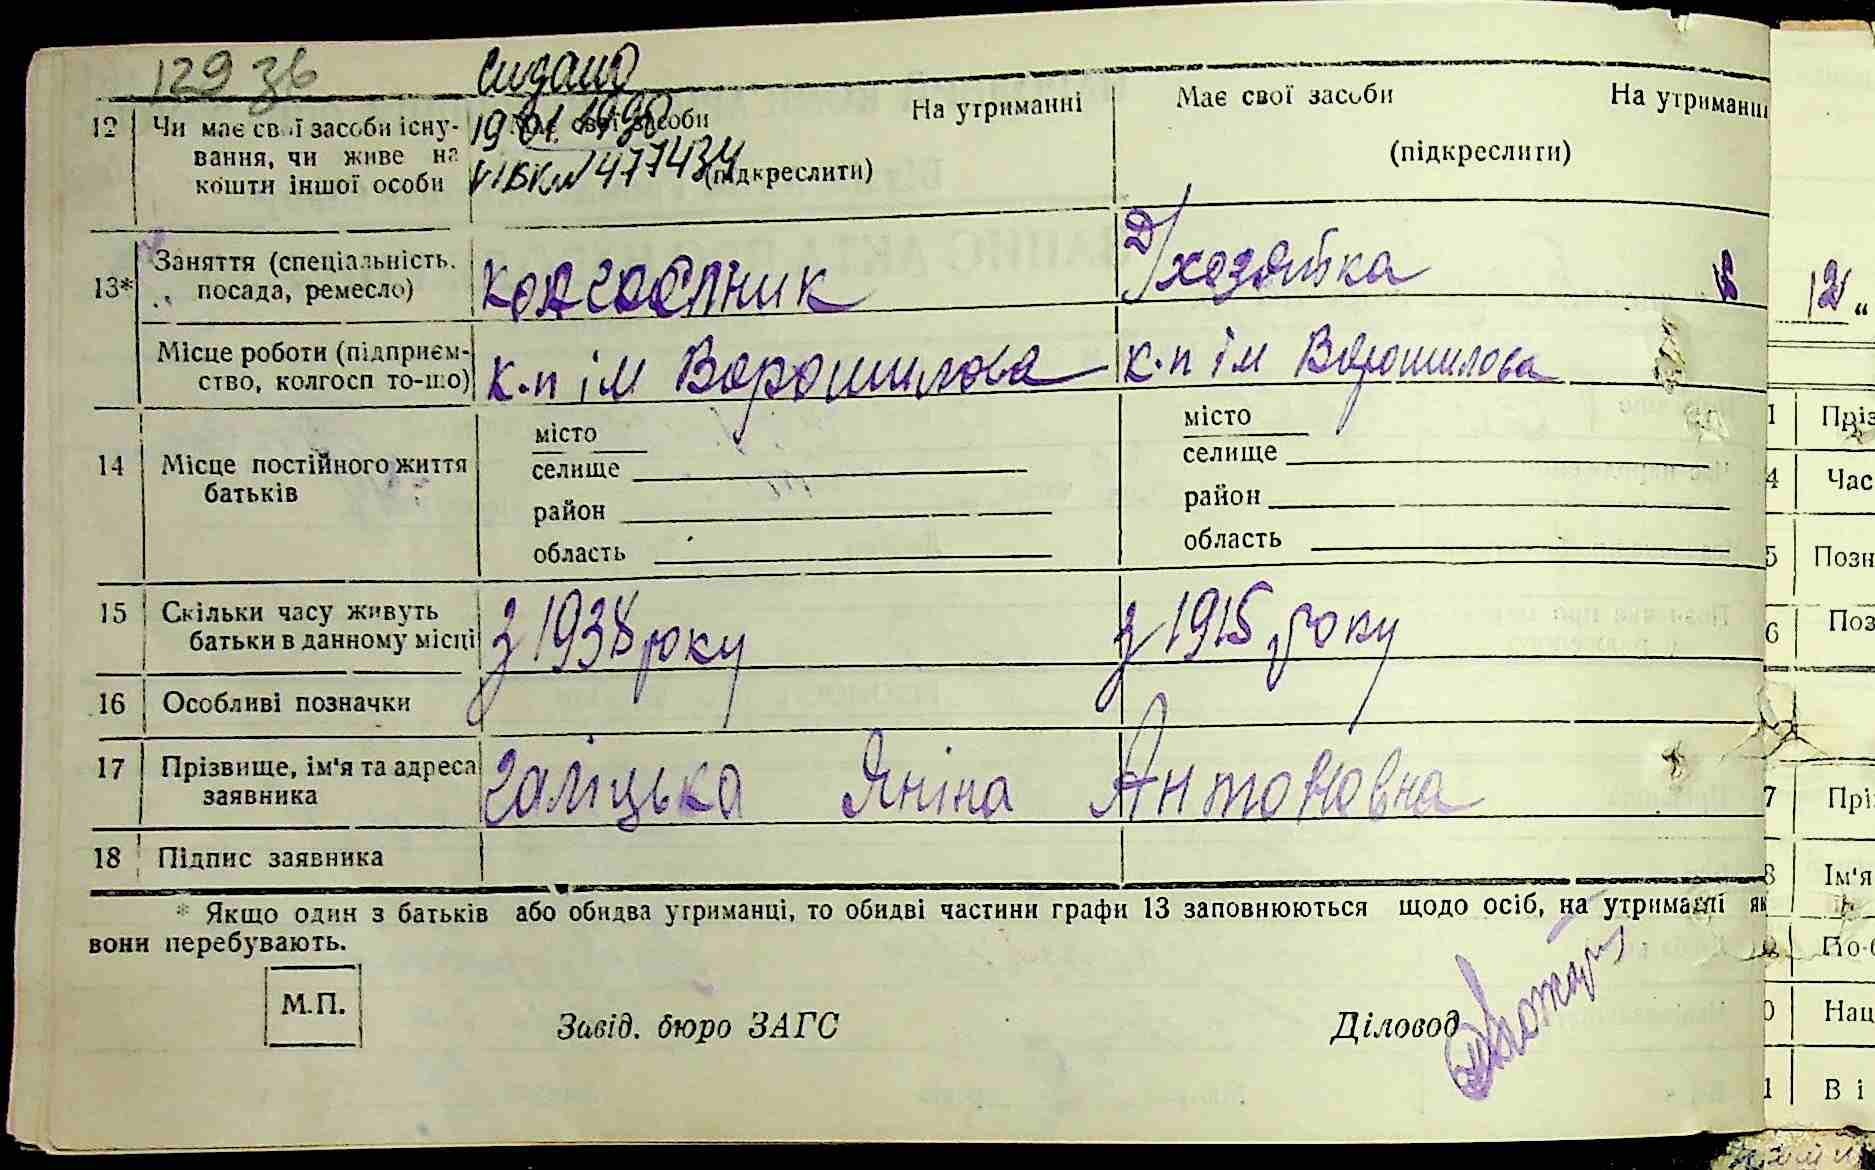 129 зв
видано
19.01.1990
VІБК № 477434
12 Чи має свої засоби існування, чи живе на кошти іншої особи
Має свої засоби На утриманні
(підкреслити)
Має свої засоби На утриманні
(підкреслити)
13* Заняття (спеціальність, посада, ремесло)
колгоспник
д/хозяйка
Місце роботи (підприєм-
ство, колгосп то-що)
к.п ім Ворошилова
к.п ім Ворошилова
14 Місце постійного життя
батьків
місто
селище
район
область
місто
селище
район
область
15 Скільки часу живуть
батьки в данному місці
з 1938 року
з 1915 року
16 Особливі позначки
17 Прізвище, ім'я та адреса
заявника
Галіцька Яніна Антоновна
18 Підпис заявника
* Якщо один з батьків або обидва утриманці, то обидві частини графи 13 заповнюються щодо осіб, на утриманні як
вони перебувають.
М.П.
Завід. бюро ЗАГС
Діловод
12 „
Пріз
Час
Позн
Поз
Прі
Ім'я
По-б
Нац
Ві